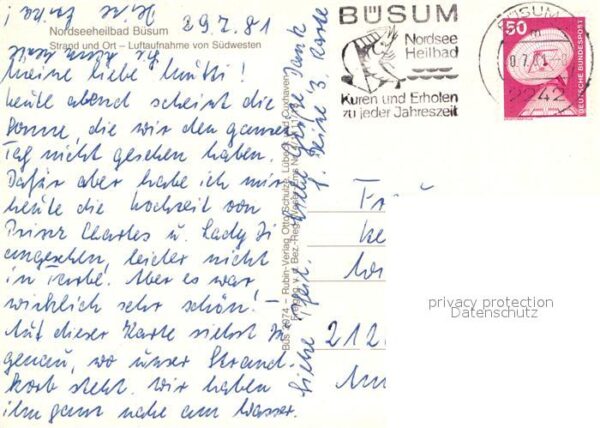 29.7.81
Nordseeheilbad Büsum
Strand und Ort – Luftaufnahme von Südwesten
Meine liebe Mutti!
heute abend scheint die
Sonne, die wir den ganzen
Tag nicht gesehen haben.
Dafür aber habe ich mir
heute die Hochzeit von
Prinz Charles u. Lady Di
angesehen, leider nicht
in Farbe. Aber es war
wirklich sehr schön! –
Auf dieser Karte siehst Du
genau, wo unser Strand-
korb steht. Wir haben
ihn ganz nahe am Wasser.
BÜS 2974 – Rubin-Verlag Otto Schulze, Lübeck und Cuxhaven
f. Deine 3. Karte
BÜSUM
Nordsee
Heilbad
Kuren und Erholen
zu jeder Jahreszeit
BÜSUM
2242
50
DEUTSCHE BUNDESPOST
privacy protection
Datenschutz
212